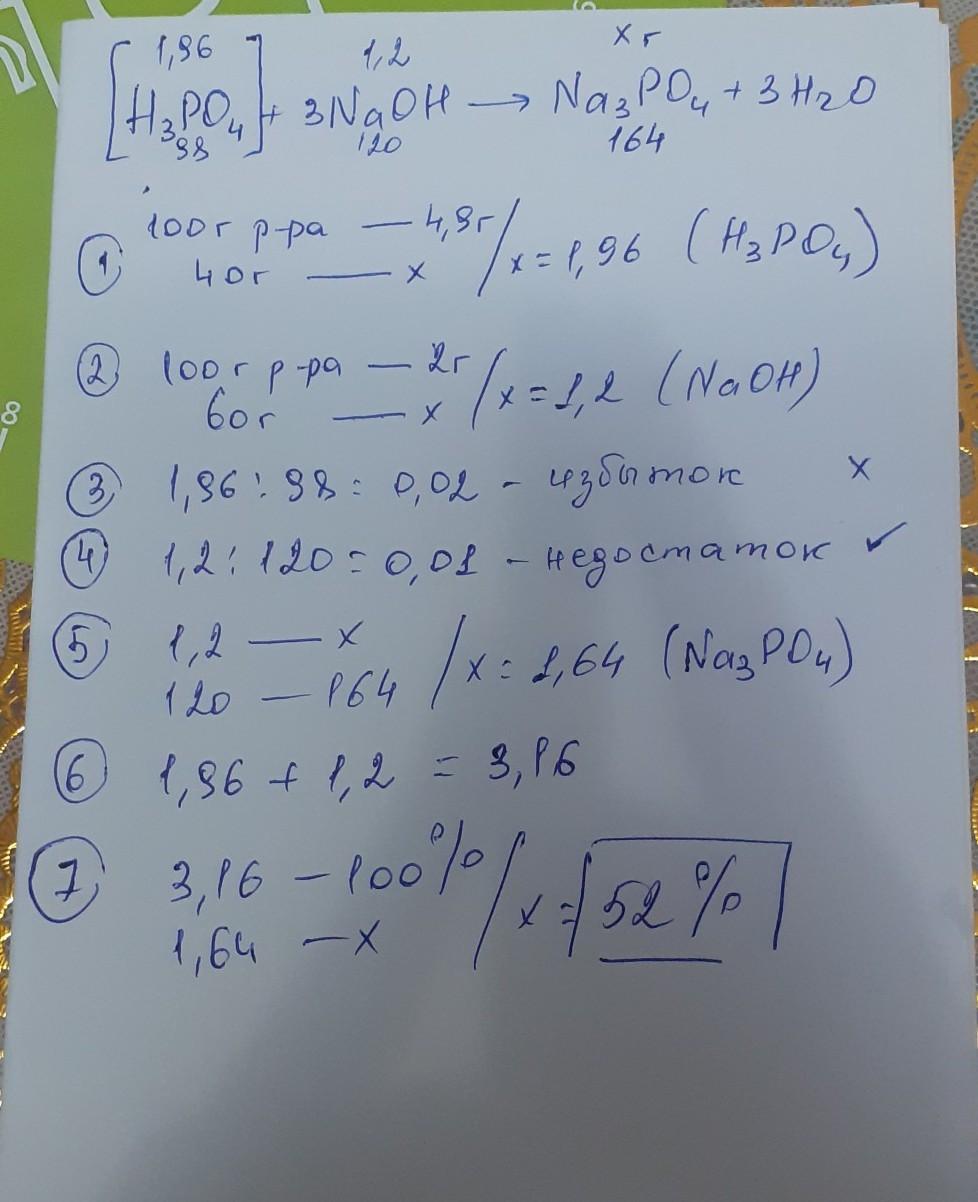 1,96 1,2 x г
[H₃PO₄] + 3NaOH → Na₃PO₄ + 3H₂O
98 120 164
① 100г р-ра — 4,9г / x = 1,96 (H₃PO₄)
40г — x
② 100г р-ра — 2г / x = 1,2 (NaOH)
60г — x
③ 1,96 : 98 = 0,02 - избыток x
④ 1,2 : 120 = 0,01 - недостаток ✓
⑤ 1,2 — x / x = 1,64 (Na₃PO₄)
120 — 164
⑥ 1,96 + 1,2 = 3,16
⑦ 3,16 — 100% / x = 52%
1,64 — x
8